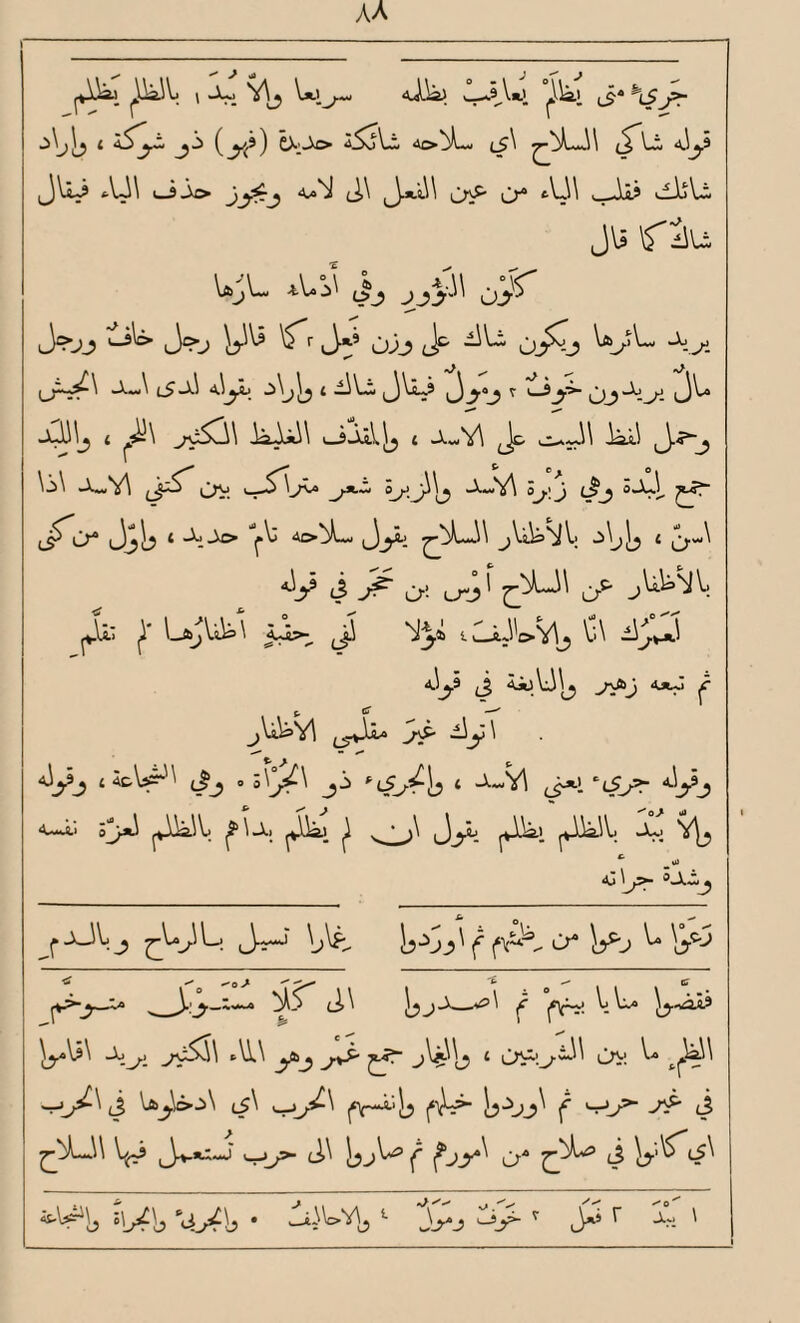 ٨٨
جريءٍ متى يظلمْ يعاقبْ بظلمه سريعا والّا يُبْدَ ١ بالظلم يظلمِ
قوله شاكي السلاح اى سلاحه شائكة حديدة (فهو) ذو شوكة ، واراد
شائك فقلب الياء من عين الفعل الى لامه ويجوز حذف الياء فيقال
شاكٌ كما قال
كلون النؤور وهي أدماء سارها
يريد سائرها ويكون شاك على وزن فعل ٢ كما قالوا رجل خاف ورجل
مال يريدون خوف ٣ ومول فيقال شاك ، واراد بقوله لدى اسد الجيش
وحمل لفظ البيت على الاسد ، والمقذف الغليظ الكثير اللحم ، واللبد
جمع لبدة وهي زبرة الاسد والزبرة شعر متراكب بين كتفي الاسد اذا
اسنّ ، واراد بالاظفار السلاح يقول سلاحه تامّ حديد ، واول من كنى
بالاظفار عن السلاح اوس بن حجر في قوله
لعمرك إنّا والأحاليف ٤ هؤلا لفي حقبة أظفارها لم تقلّمِ
ثم تبعه زهير والنابغة في قوله
أتوك غير مقلّمي الأظفار
وقوله جريء يعني الاسد ، والجريء ذو الجرأة ٥ وهي الشجاعة ، وقوله
والّا يُبْدَ بالظلم يظلم يقول ان لم يظلم بدأهم بالظلم لعزّة نفسه
وشدّة جرأته
رعوا ما رعوا من ظمئهم ثم اوردوا غمارا تسيل بالرماح وبالدم
فقضّوا منايا بينهم ثم اصدروا الى كلإ مستوبل متوخّم
الظمء ما بين الشربتين ، والغمار جمع غمر وهو الماء الكثير يريد اقاموا
في غير حرب ثم اوردوا خيلهم وانفسهم الحرب اى ادخلوها في الحرب
اى كانوا في صلاح من امورهم ثم صاروا الى حرب يستعمل فيها السلاح
١ يبد ٢ فعل ٣ خوف ومول ٤ والأحالف ٥ والجرىء والجراة والشجاعة